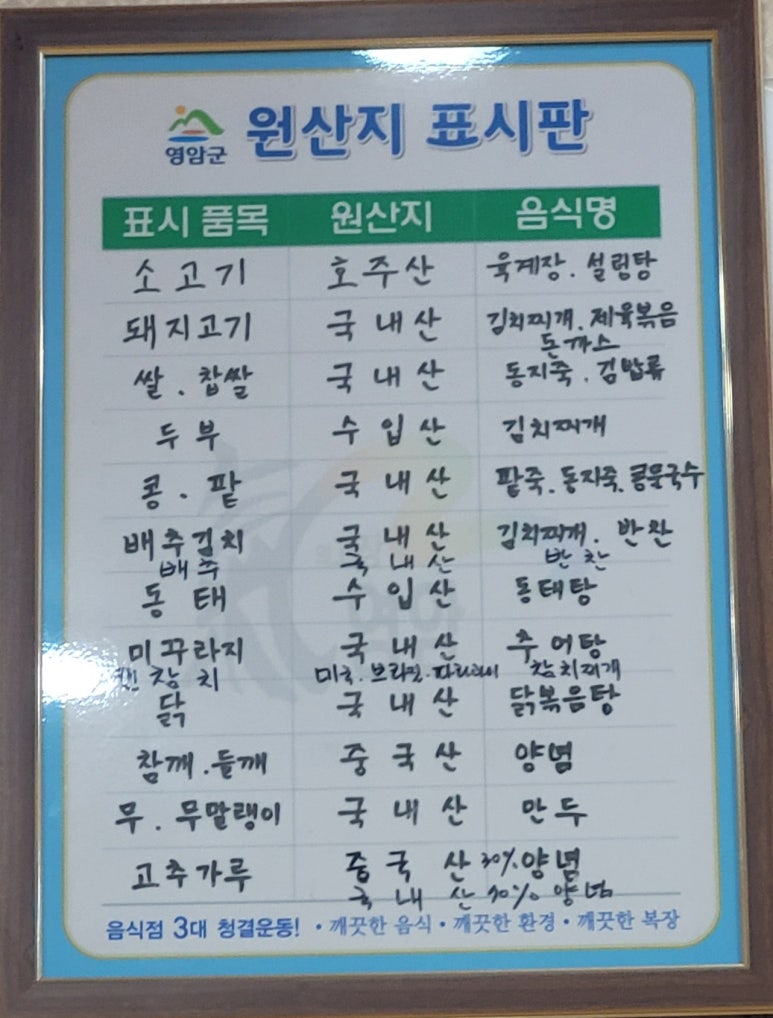 영암군 원산지 표시판
표시 품목 원산지 음식명
소고기 호주산 육계장. 설렁탕
돼지고기 국내산 김치찌개. 제육볶음
돈까스
쌀. 찹쌀 국내산 동지죽. 김밥류
두부 수입산 김치찌개
콩. 팥 국내산 팥죽. 동지죽. 콩물국수
배추김치 국내산 김치찌개. 반찬
배추 국내산 반찬
동태 수입산 동태탕
미꾸라지 국내산 추어탕
참치 미국. 브라질. 참치찌개
닭 국내산 닭볶음탕
참깨. 들깨 중국산 양념
무. 무말랭이 국내산 만두
고추가루 중국산 양념
국내산 양념
음식점 3대 청결운동! • 깨끗한 음식 • 깨끗한 환경 • 깨끗한 복장